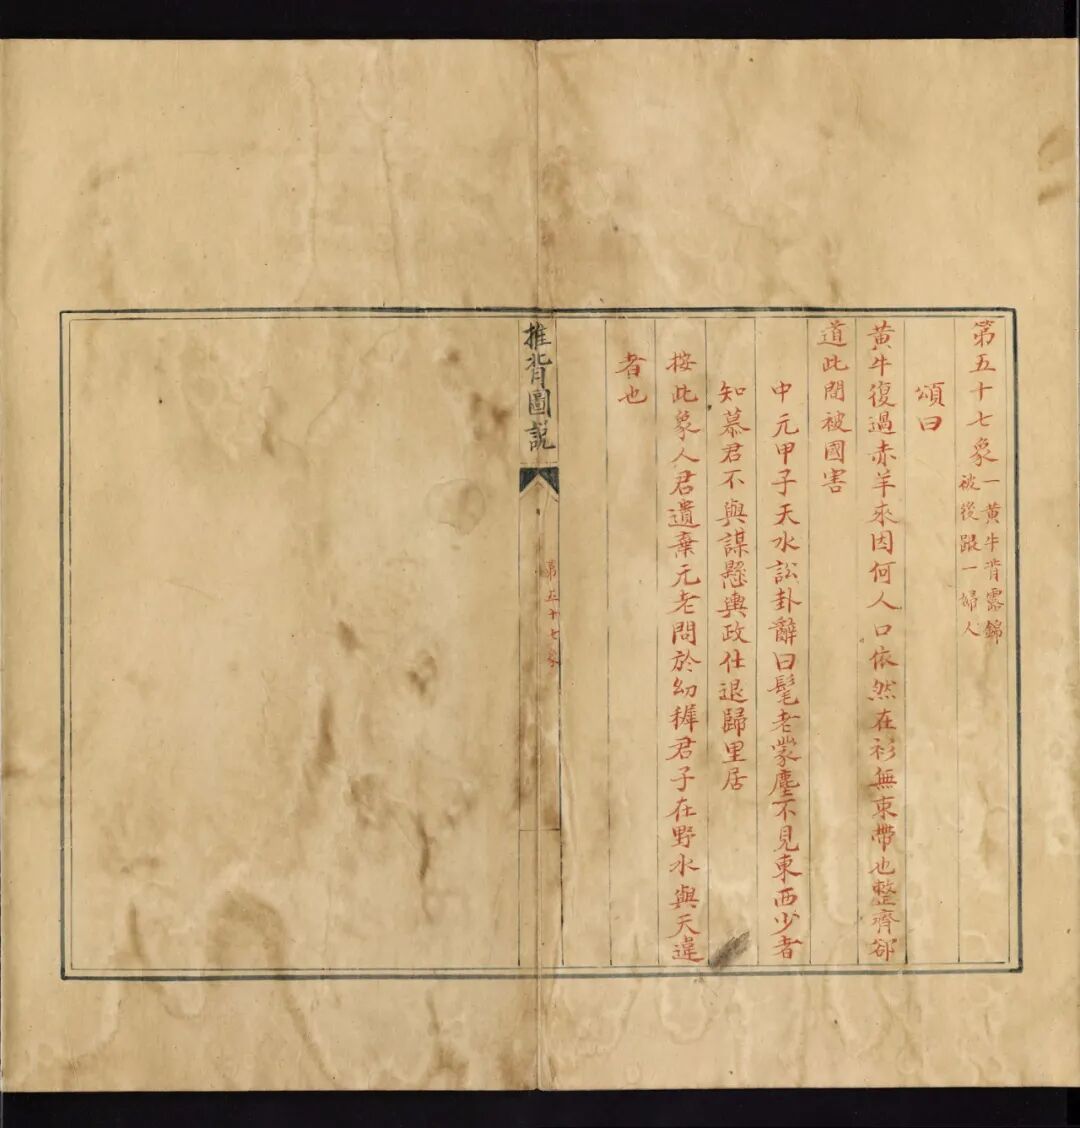 第五十七象
一黃牛背露錦
被後跟一婦人
頌曰
黃牛復過赤羊來因何人口依然在衫無束帶也整齊卻
道此間被國害
中元甲子天水訟卦辭曰髦老蒙塵不見東西少者
知慕君不與謀懸輿政仕退歸里居
按此象人君遺棄元老問於幼穉君子在野水與天違
者也
推背圖說
第五十七象